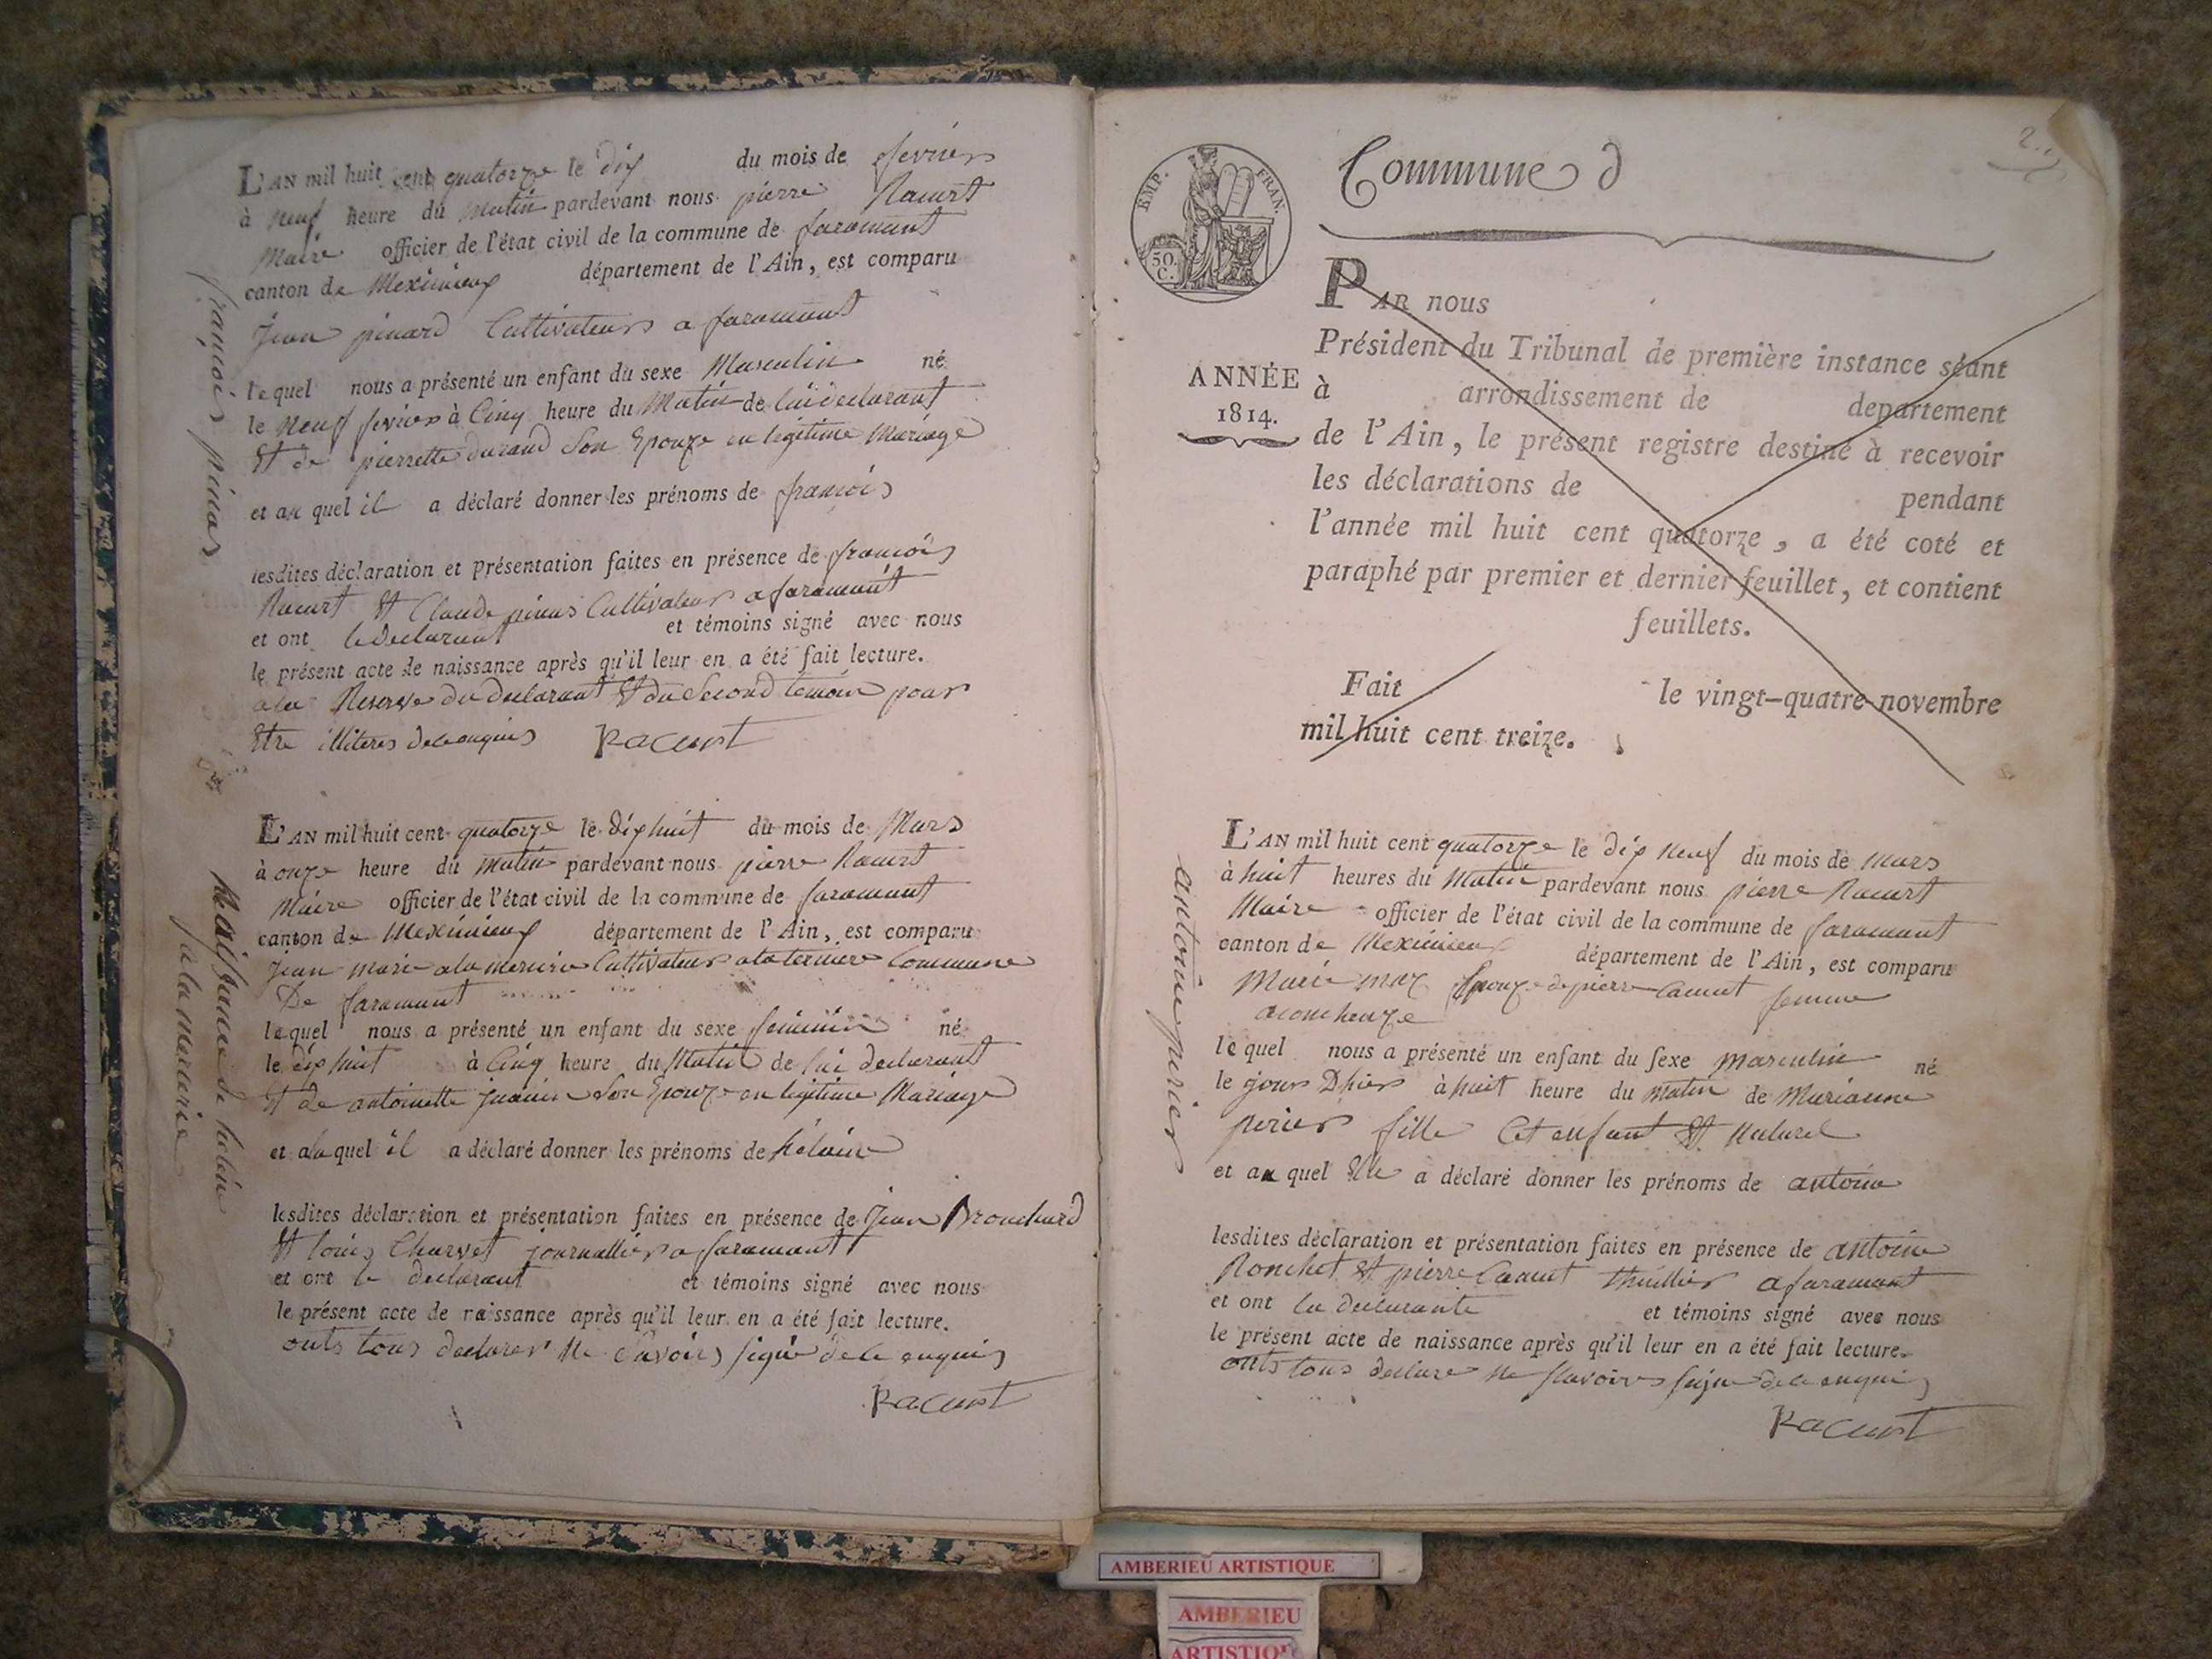 L'AN mil huit cent quatorze le dix du mois de fevrier
à neuf heure du Matin pardevant nous pierre Racurt
Maire officier de l'état civil de la commune de faramant
canton de Meximieux département de l'Ain, est comparu
Jean pinard Cultivateur a faramant
lequel nous a présenté un enfant du sexe Masculin né
le Neuf fevrier à Cinq heure du Matin de lui declarant
Et de pierrette durand Son Epouze en legitime Mariage
et au quel il a déclaré donner les prénoms de françois
lesdites déclaration et présentation faites en présence de françois
Racurt Et Claude Cultivateur a faramant
et ont le declarant et témoins signé avec nous
le présent acte de naissance après qu'il leur en a été fait lecture.
a la Reserve du declarant Et du Second temoin pour
Etre illiteres de ce enquis Racurt
françois
L'AN mil huit cent quatorze le dix huit du mois de Mars
à onze heure du matin pardevant nous pierre Racurt
Maire officier de l'état civil de la commune de faramant
canton de Meximieux département de l'Ain, est comparu
Jean marie a la mercerie Cultivateur a la Commune
De faramant
lequel nous a présenté un enfant du sexe feminin né
le dix huit à Cinq heure du Matin de lui declarant
Et de antoinette Son Epouze en legitime Mariage
et a la quel il a déclaré donner les prénoms de
lesdites déclaration et présentation faites en présence de Jean Brouchard
Et louis Charvet journallier a faramant
et ont le declarant et témoins signé avec nous
le présent acte de naissance après qu'il leur en a été fait lecture.
onts tous declarer ne Savoir signé de ce enquis
Racurt
Naissance de
2.
Commune d
EMP. FRAN.
50. C.
ANNÉE
1814.
PAR nous
Président du Tribunal de première instance séant
à arrondissement de departement
de l'Ain, le présent registre destiné à recevoir
les déclarations de pendant
l'année mil huit cent quatorze, a été coté et
paraphé par premier et dernier feuillet, et contient
feuillets.
Fait le vingt-quatre novembre
mil huit cent treize.
L'AN mil huit cent quatorze le dix neuf du mois de mars
à huit heures du Matin pardevant nous pierre Racurt
Maire officier de l'état civil de la commune de faramant
canton de Meximieux département de l'Ain, est comparu
Marie Epouze de pierre femme
acoucheuze
lequel nous a présenté un enfant du sexe masculin né
le jour Dhier à huit heure du matin de Marianne
perier fille Cet enfant Et Naturel
et au quel Elle a déclaré donner les prénoms de antoine
lesdites déclaration et présentation faites en présence de antoine
Ronchet Et pierre thuillier a faramant
et ont la declarante et témoins signé avec nous
le présent acte de naissance après qu'il leur en a été fait lecture.
onts tous declare ne scavoir signe de ce enquis
Racurt
antoine perier
AMBERIEU ARTISTIQUE
AMBERIEU
ARTISTIQ